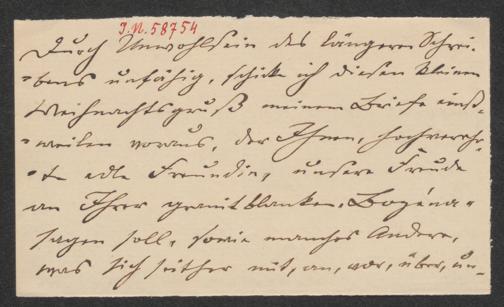 I.N. 58754
Durch Unwohlsein des längeren Schrei-
-bens unfähig, schicke ich diesen kleinen
Weihnachtsgruß meinem Briefe einst-
-weilen voraus, der Ihnen, hochverehr-
-te edle Freundin, unsere Freude
an Ihrer granitblanken, Božena-
sagen soll, sowie manches Andere,
was sich seither mit, an, vor, über, un-